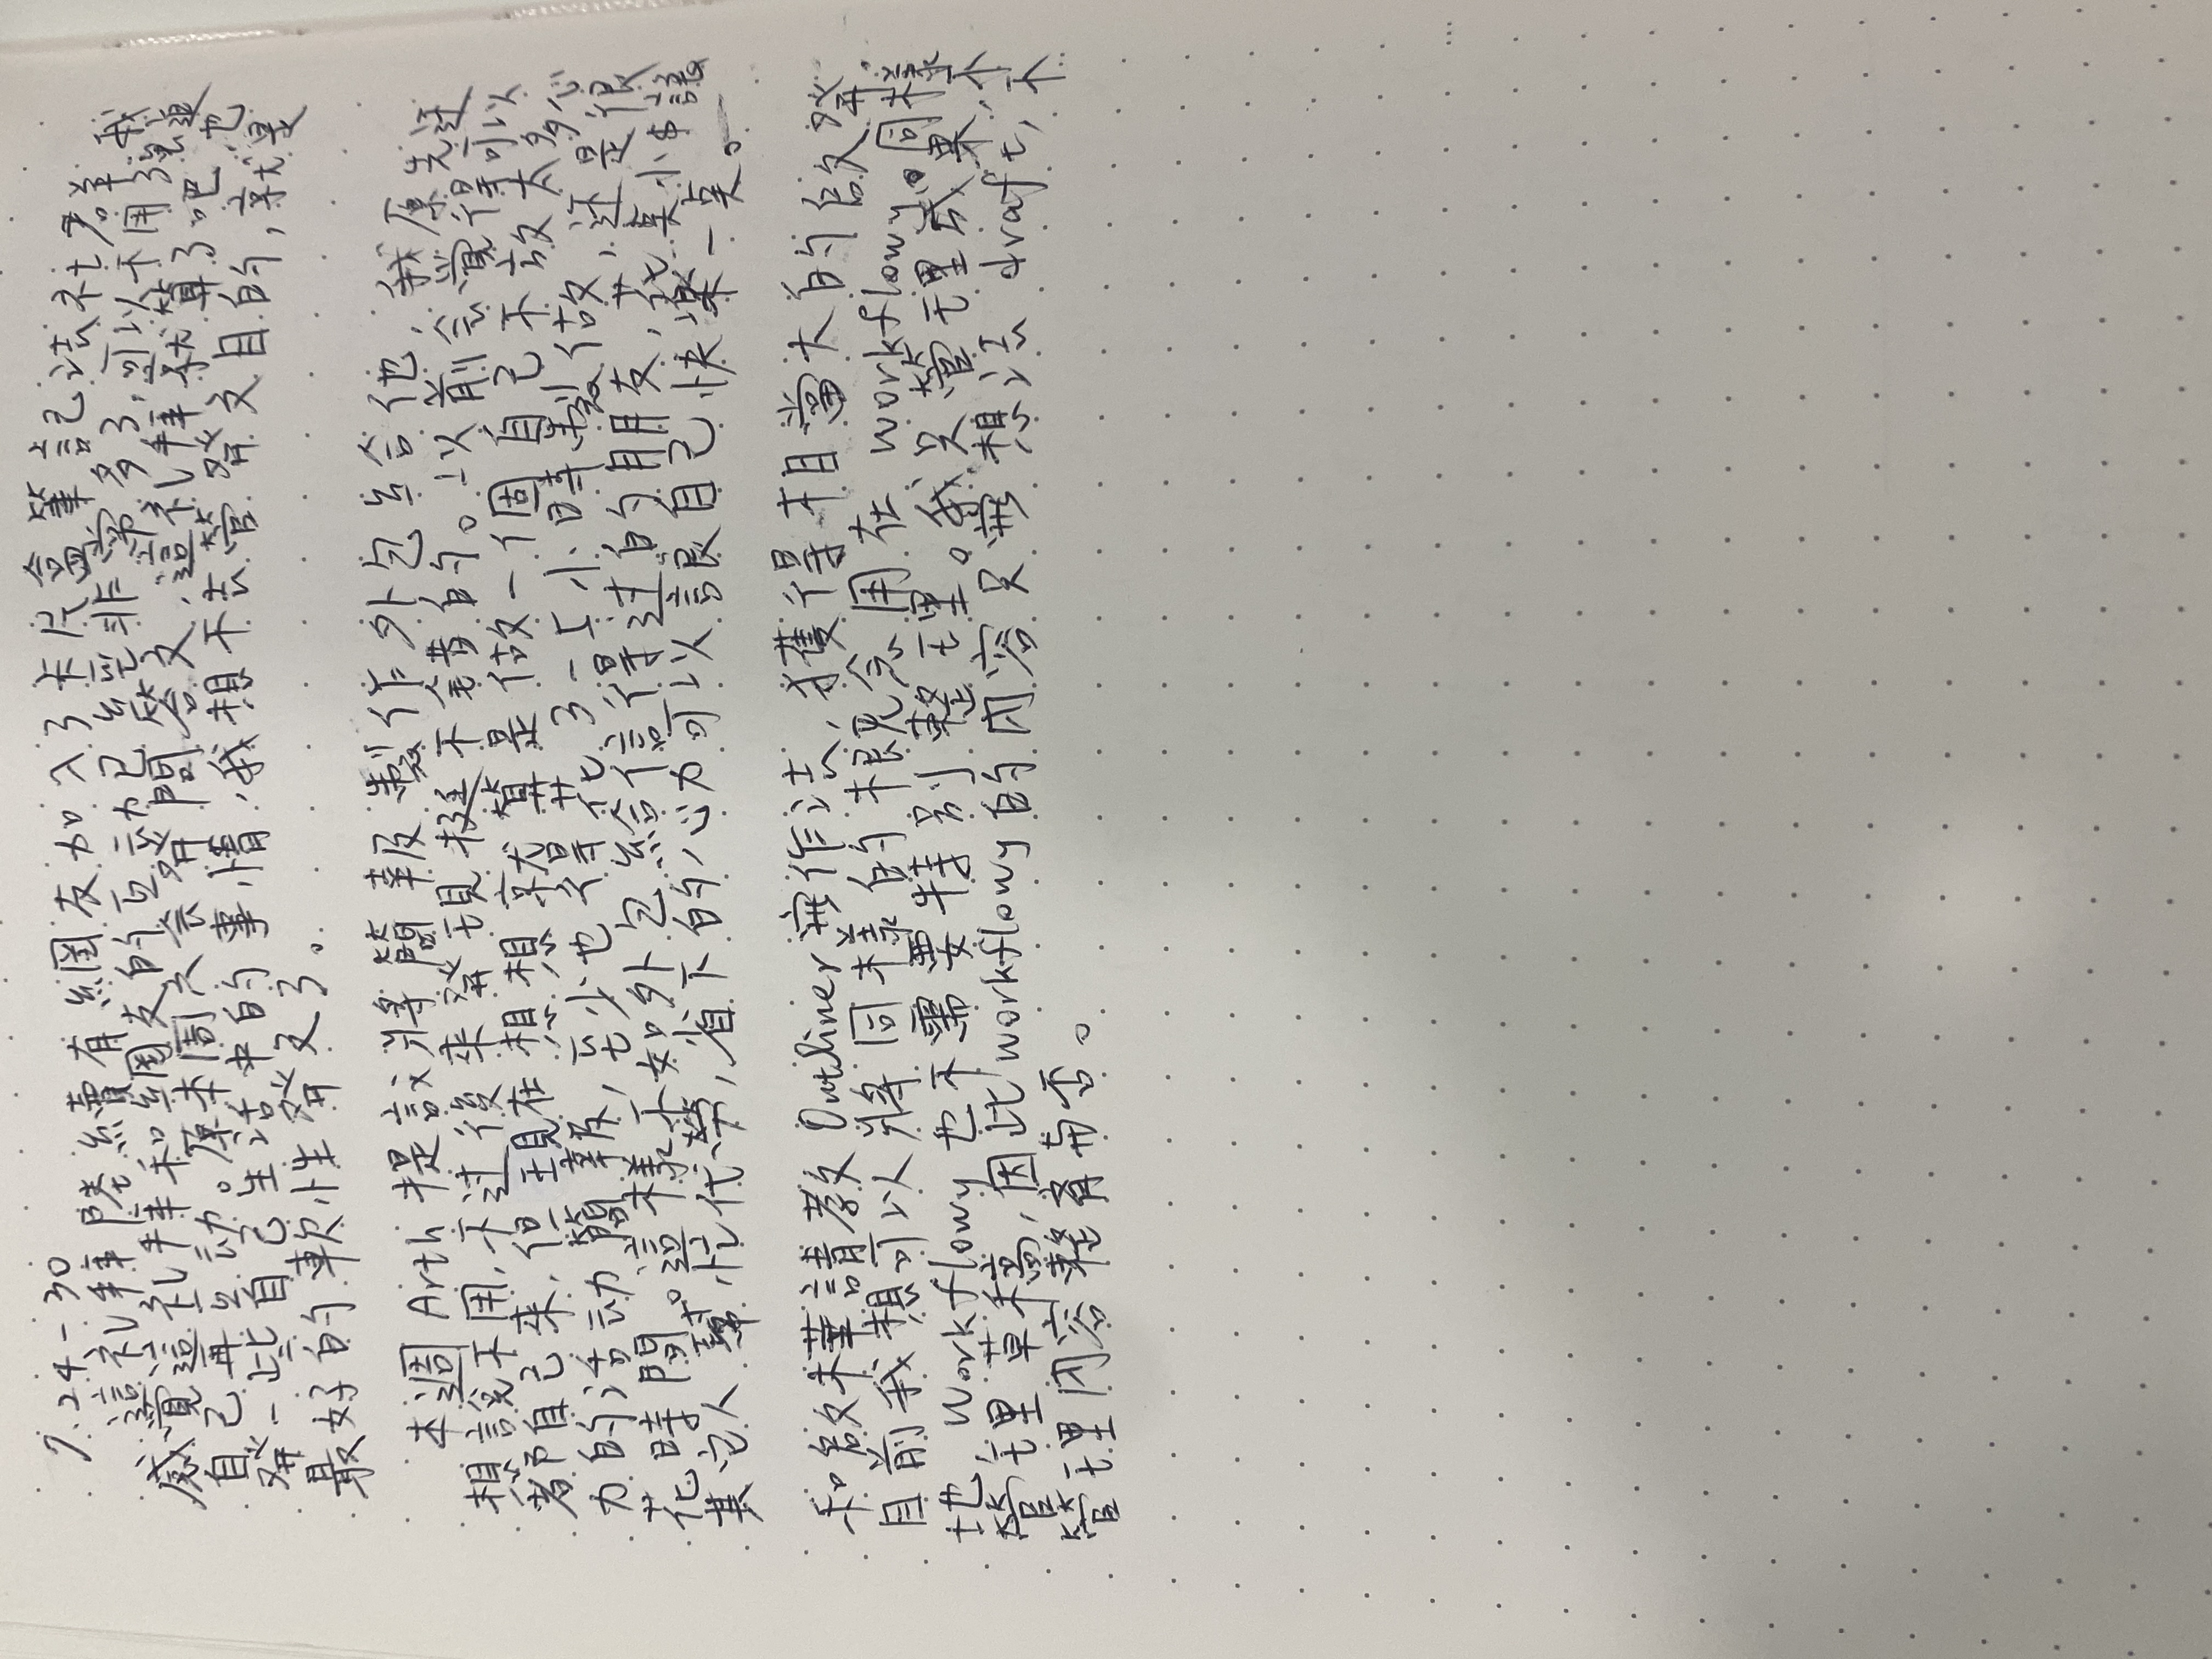 7.24-30
這礼拜陸續有網友加入了卡片盒筆記法社群,我
感覺這礼拜和網友的互动已經非常多了,可以不用強迫
自己再互动。原本周六会發問答文,這礼拜就算了吧,也
發一些自己生活中的事情,我想不去管發文目的,就是
最好的軟性發文了。
本週Arth提議將簡報製作外包给他,我原先还
想說不用,不过後來發現挺不錯的。以前会覺得可以
都自己來,但現在想想就算是做一個自己不放太多心
力的活动簡報,至少也得花3-5小時製做,还是很
花時間。這樣不如外包給信得过的朋友,花臭小錢讓
其它人幫忙代勞,省下的心力可以讓自己快樂一点。
和啟樺請教Outliner寫作法,獲得相當大的啟發。
目前我想可以將同樣的概念用在workflowy。同樣
地,Workflowy也不需要特別整理。我只管理成果,不
管理草稿,因此workflowy的內容只寫想法draft,不
管理內容整齊与否。